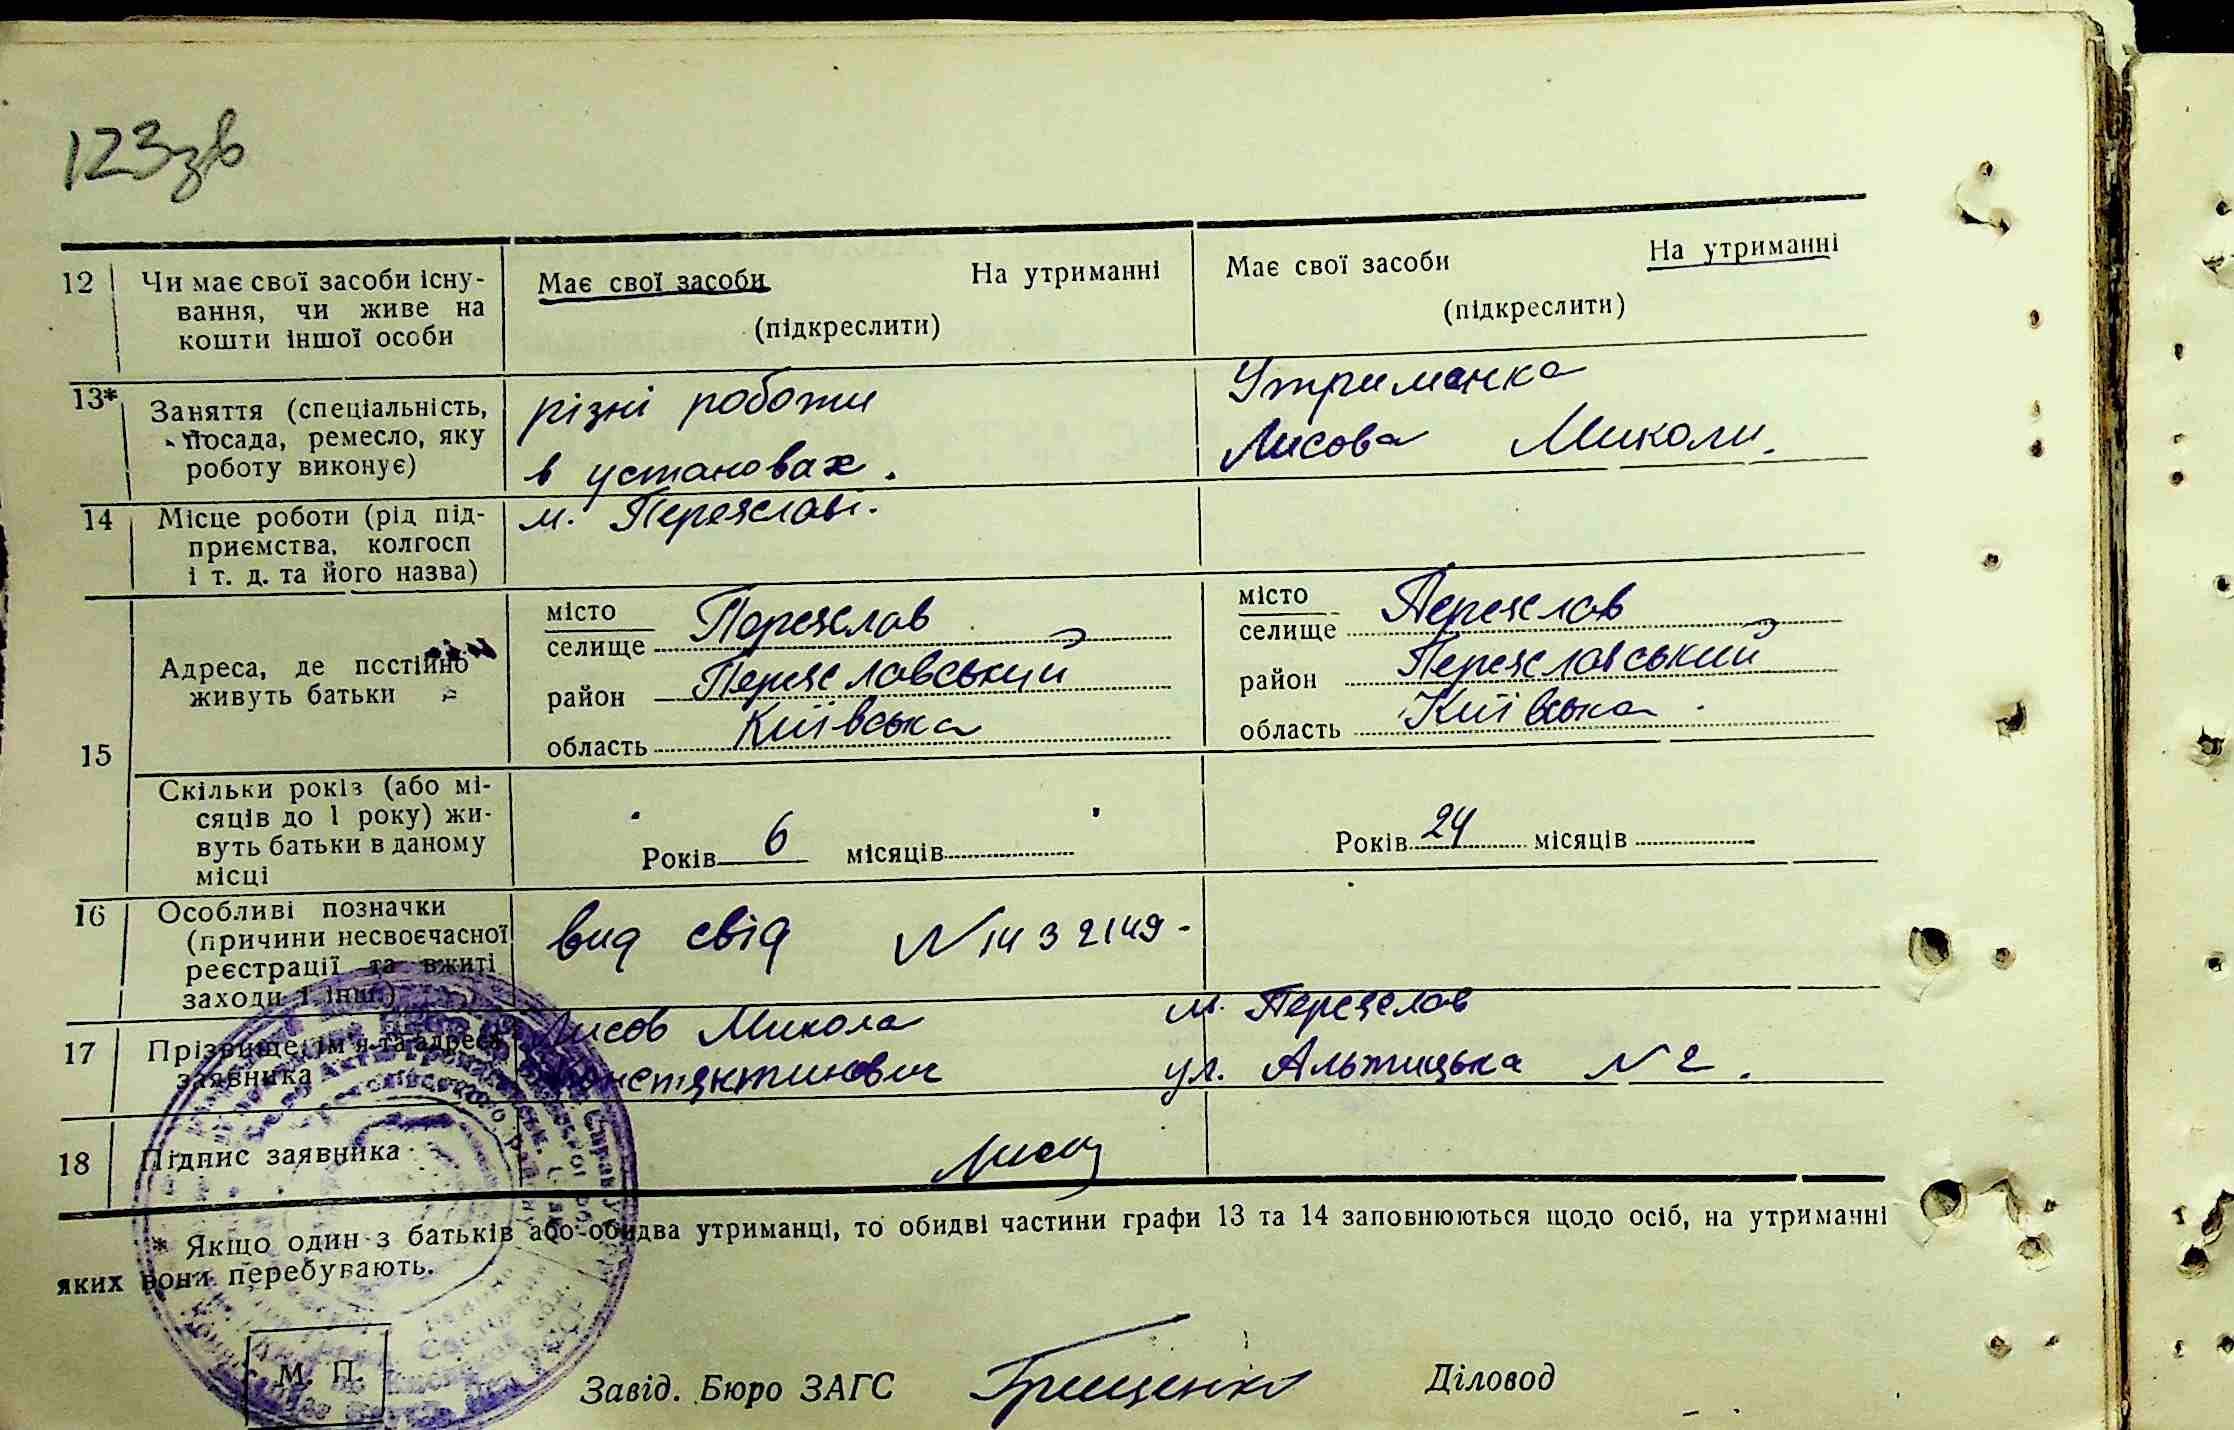 123зв
12 Чи має свої засоби існу- Має свої засоби На утриманні Має свої засоби На утриманні
вання, чи живе на (підкреслити) (підкреслити)
кошти іншої особи
13* Заняття (спеціальність, різні роботи Утриманка
посада, ремесло, яку в установах. Лисова Миколи.
роботу виконує)
14 Місце роботи (рід під- м. Переяславі.
приємства, колгосп
і т. д. та його назва)
15 Адреса, де постійно місто Переяслав місто Переяслав
живуть батьки селище селище
район Переяславський район Переяславський
область Київська область Київська
Скільки років (або мі-
сяців до 1 року) жи-
вуть батьки в даному Років 6 місяців Років 24 місяців
місці
16 Особливі позначки
(причини несвоєчасної вид свід N 1432149-
реєстрації та вжиті
заходи і інш.)
17 Прізвище, ім'я та адреса Лисов Микола м. Переяслав
заявника Констянтинович ул. Альтицька N 2.
18 Підпис заявника
* Якщо один з батьків або обидва утриманці, то обидві частини графи 13 та 14 заповнюються щодо осіб, на утриманні
яких вони перебувають.
М. П.
Завід. Бюро ЗАГС Грищенко Діловод